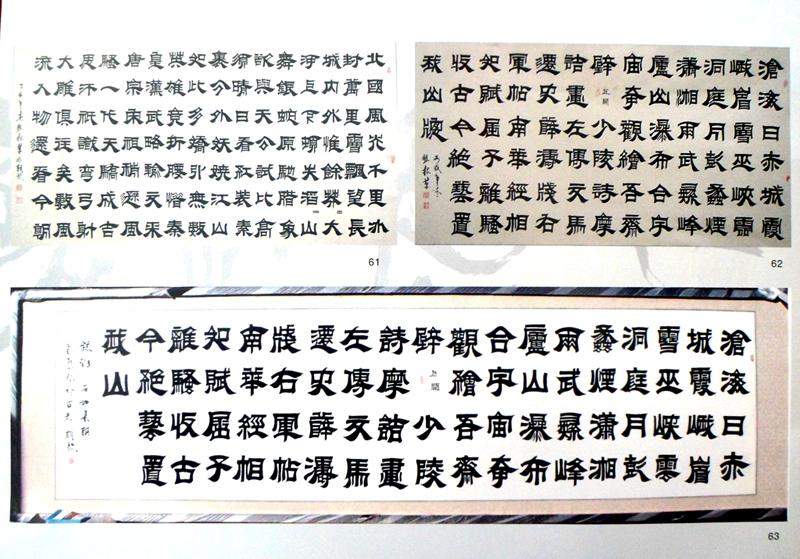 北國風光千里冰
封萬里雪飄望長
城内外惟餘莽大
河上下頓失滔山
舞銀蛇原馳臘象
欲與天公試比高
須晴日看紅裝素
裹分外妖嬈江山
如此多嬌引無數
英雄競折腰惜秦
皇漢武略輸文采
唐宗宋祖稍遜風
騷一代天驕成吉
思汗祇識彎弓射
大雕俱往矣數風
流人物還看今朝
61
滄海日赤城霞
峨眉雪巫峽雲
洞庭月彭蠡煙
瀟湘雨武彝峰
廬山瀑布合宇
宙奇觀繪吾齋
壁少陵詩摩
詰畫左傳文馬
遷史薛濤牋右
軍帖南華經相
如賦屈子離騷
收古今絕藝置
我山牕
62
滄海日赤
城霞峨眉
雪巫峽雲
洞庭月彭
蠡煙瀟湘
雨武彝峰
廬山瀑布
合宇宙奇
觀繪吾齋
壁少陵
詩摩詰畫
左傳文馬
遷史薛濤
牋右軍帖
南華經相
如賦屈子
離騷收古
今絕藝置
我山
63